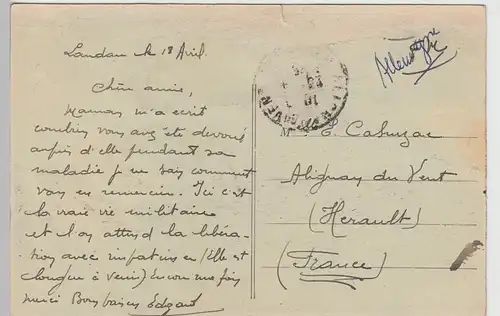 Landau le 18 Avril.
Chère amie,
Maman m'a ecrit
combien vous avez été devoué
auprès d'elle pendant sa
maladie je ne sais comment
vous en remercier. Ici c'est
la vraie vie militaire
et l'on attend la libéra-
tion avec impatience (elle est
longue à venir) Encore une fois
merci Bons baisers Edgard
Allemagne
M. E. Cabuzac
Alignan du Vent
(Hérault)
(France)